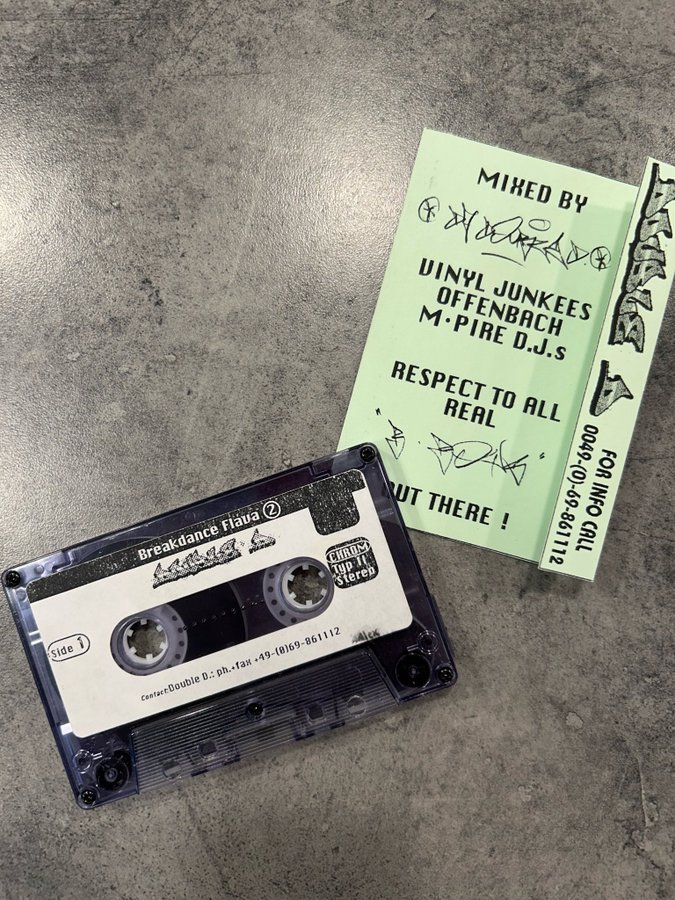 MIXED BY
DJ DOUBLE D.
VINYL JUNKEES
OFFENBACH
M·PIRE D.J.s
RESPECT TO ALL
REAL
OUT THERE !
DOUBLE D
FOR INFO CALL
0049-(0)-69-861112
Breakdance Flava ②
DOUBLE D
CHROM
Typ II
Stereo
Side 1
Contact:Double D.: ph.+fax +49-(0)69-861112